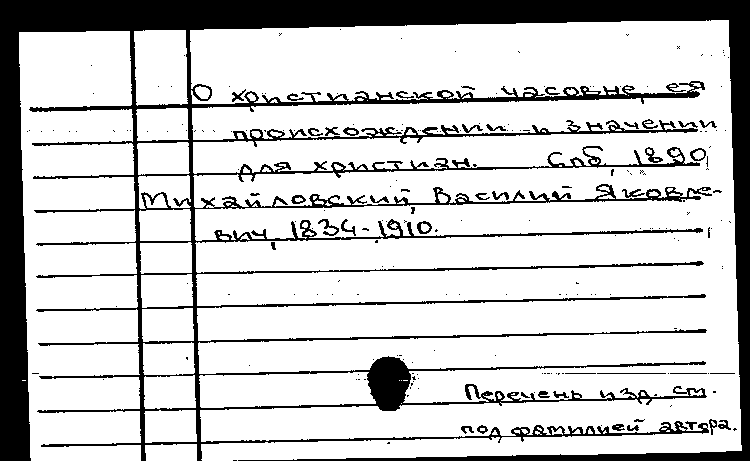 О христианской часовне, ея
происхождении и значении
для христиан. Спб, 1890
Михайловский, Василий Яковле-
вич, 1834-1910.
Перечень изд. см.
под фамилией автора.